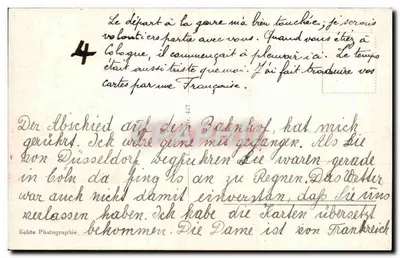 Le départ à la gare m'a bien touchée; je serais
volontiers partie avec vous. Quand vous étiez à
4 Cologne, il commençait à pleuvoir ici. Le temps
était aussi triste que moi. J'ai fait traduire vos
cartes par une Française.
Der Abschied auf den Bahnhof, hat mich
gerührt. Ich wäre gerne mit gegangen. Als Sie
von Düsseldorf, Sie waren gerade
in Cöln da fing es an zu Regnen. Das Wetter
war auch nicht damit einverstan, daß Sie uns
verlassen haben. Ich habe die Karten übersetzt
bekommen. Die Dame ist von Frankreich
Echte Photographie